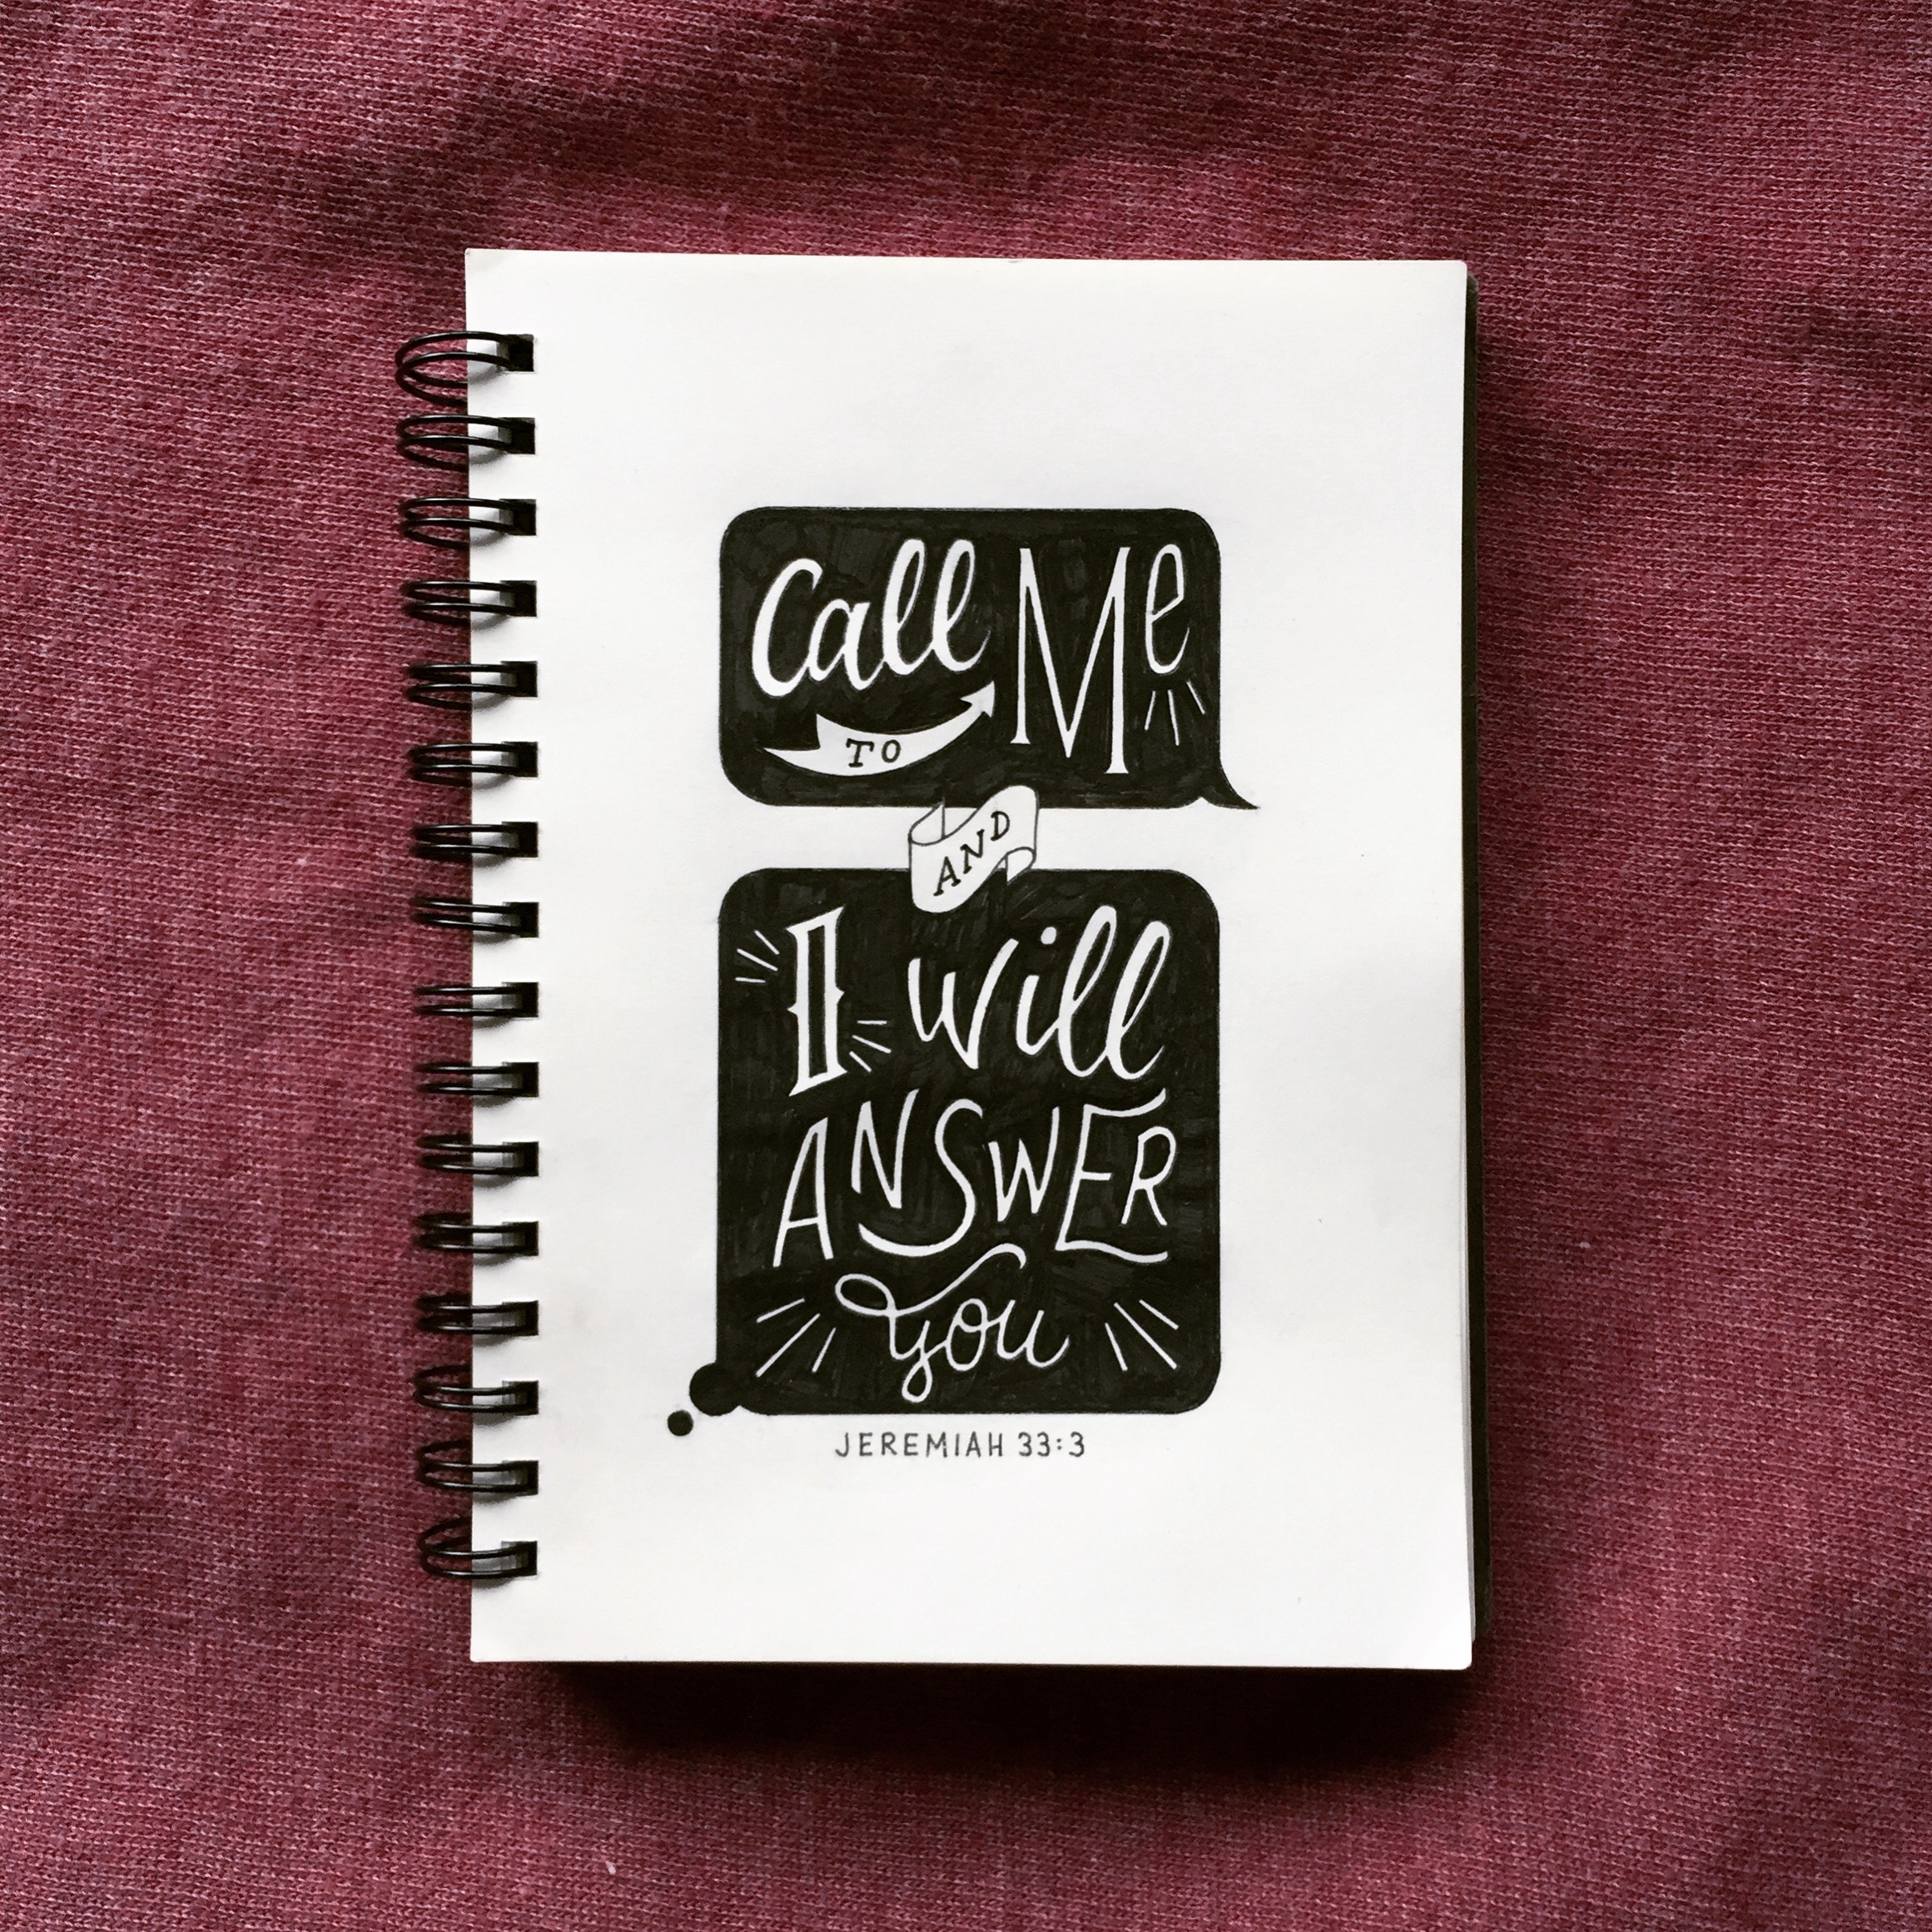 Call Me
TO
AND
I will
ANSWER
you
JEREMIAH 33:3